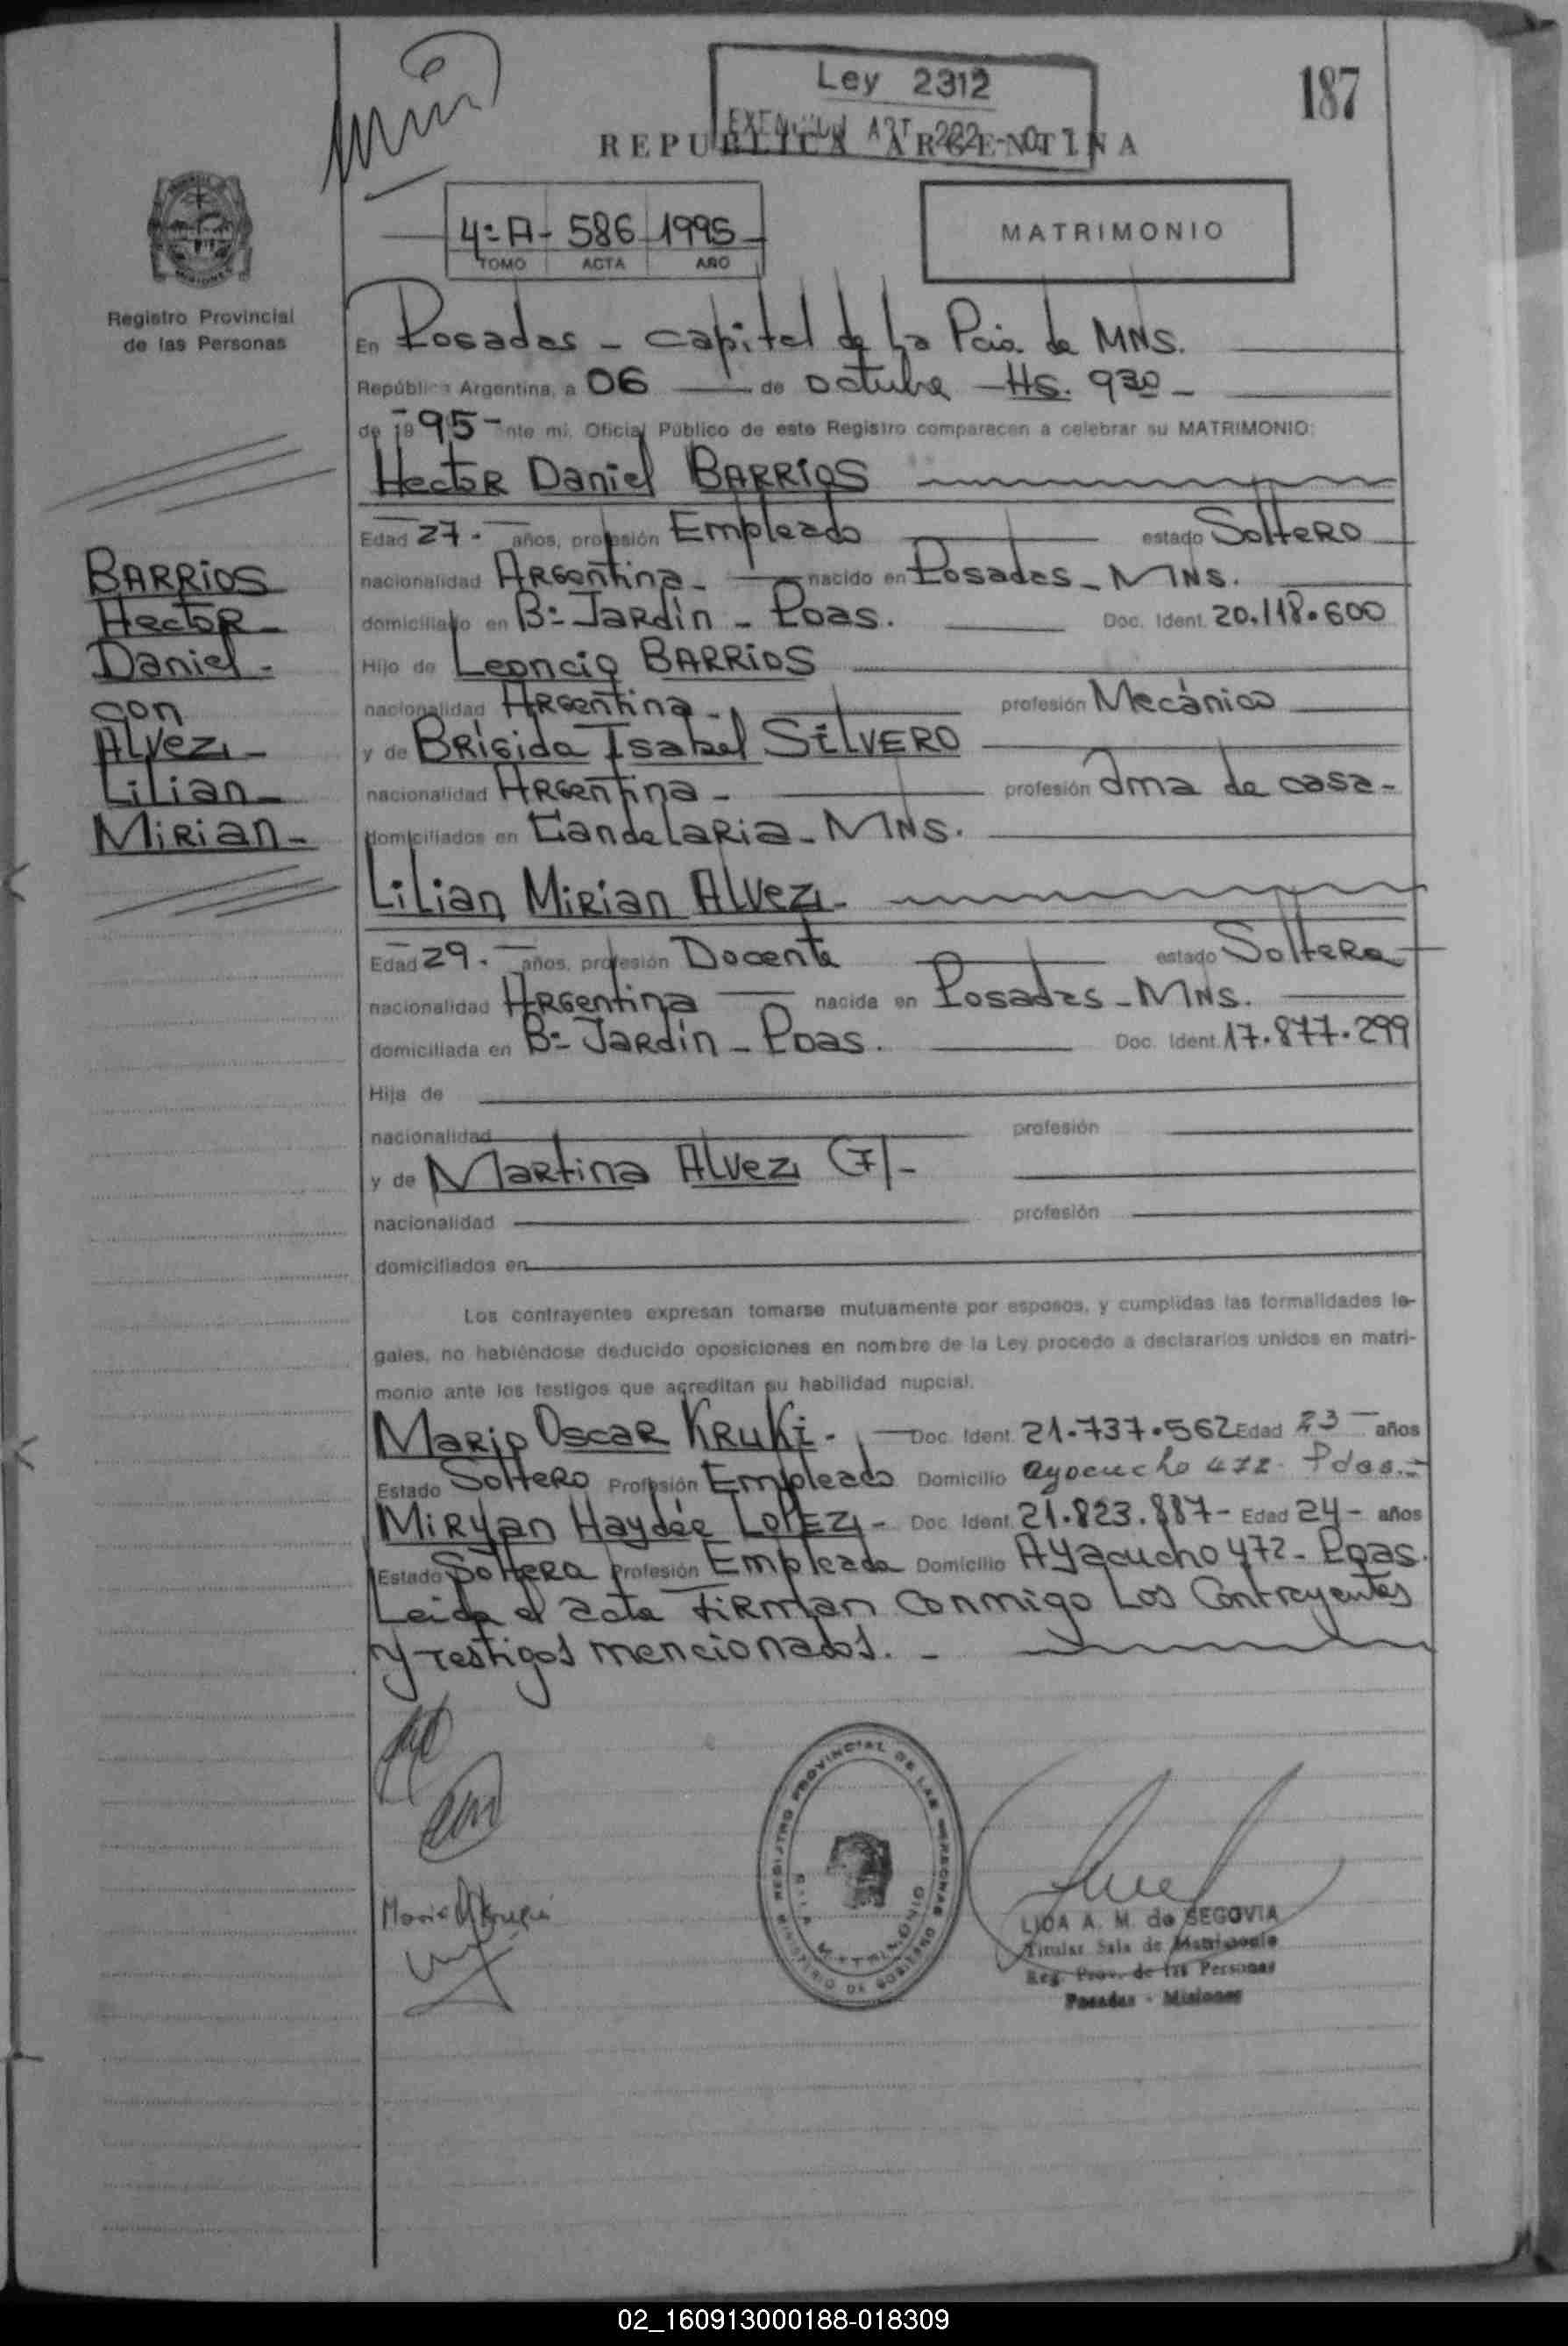 187
Ley 2312
REPUBLICA ARGENTINA
4º A - 586 1995
TOMO ACTA AÑO
MATRIMONIO
Registro Provincial
de las Personas
En Posadas - Capital de La Pcia. de MNS.
República Argentina, a 06 de octubre - Hs. 930 -
de 1995 - nte mi, Oficial Público de este Registro comparecen a celebrar su MATRIMONIO:
Hector Daniel BARRIOS
Edad 27 - años, profesión Empleado estado Soltero
nacionalidad Argentina - nacido en Posadas - MNS.
domiciliado en Bº Jardín - Pdas. Doc. Ident. 20.118.600
Hijo de Leoncio BARRIOS
nacionalidad Argentina - profesión Mecánico
y de Brígida Isabel SILVERO
nacionalidad Argentina - profesión Ama de casa -
domiciliados en Candelaria - MNS.
BARRIOS
Hector -
Daniel -
con
Alvez -
Lilian -
Mirian -
Lilian Mirian Alvez -
Edad 29 - años, profesión Docente estado Soltera
nacionalidad Argentina nacida en Posadas - MNS.
domiciliada en Bº Jardín - Pdas. Doc. Ident. 17.877.299
Hija de
nacionalidad profesión
y de Martina Alvez (F) -
nacionalidad profesión
domiciliados en
Los contrayentes expresan tomarse mutuamente por esposos, y cumplidas las formalidades le-
gales, no habiéndose deducido oposiciones en nombre de la Ley procedo a declararlos unidos en matri-
monio ante los testigos que acreditan su habilidad nupcial.
Mario Oscar Kruki - Doc. Ident. 21.737.562 Edad 23 años
Estado Soltero Profesión Empleado Domicilio Ayacucho 472 - Pdas. -
Miryan Haydée Lopez - Doc. Ident. 21.823.887 - Edad 24 - años
Estado Soltera Profesión Empleada Domicilio Ayacucho 472 - Pdas.
Leida el acta firman conmigo Los Contrayentes
y testigos mencionados. -
REGISTRO PROVINCIAL DE LAS PERSONAS
MINISTERIO DE GOBIERNO
LIDA A. M. de SEGOVIA
Titular Sala de Matrimonio
Reg. Prov. de las Personas
Posadas - Misiones
02_160913000188-018309